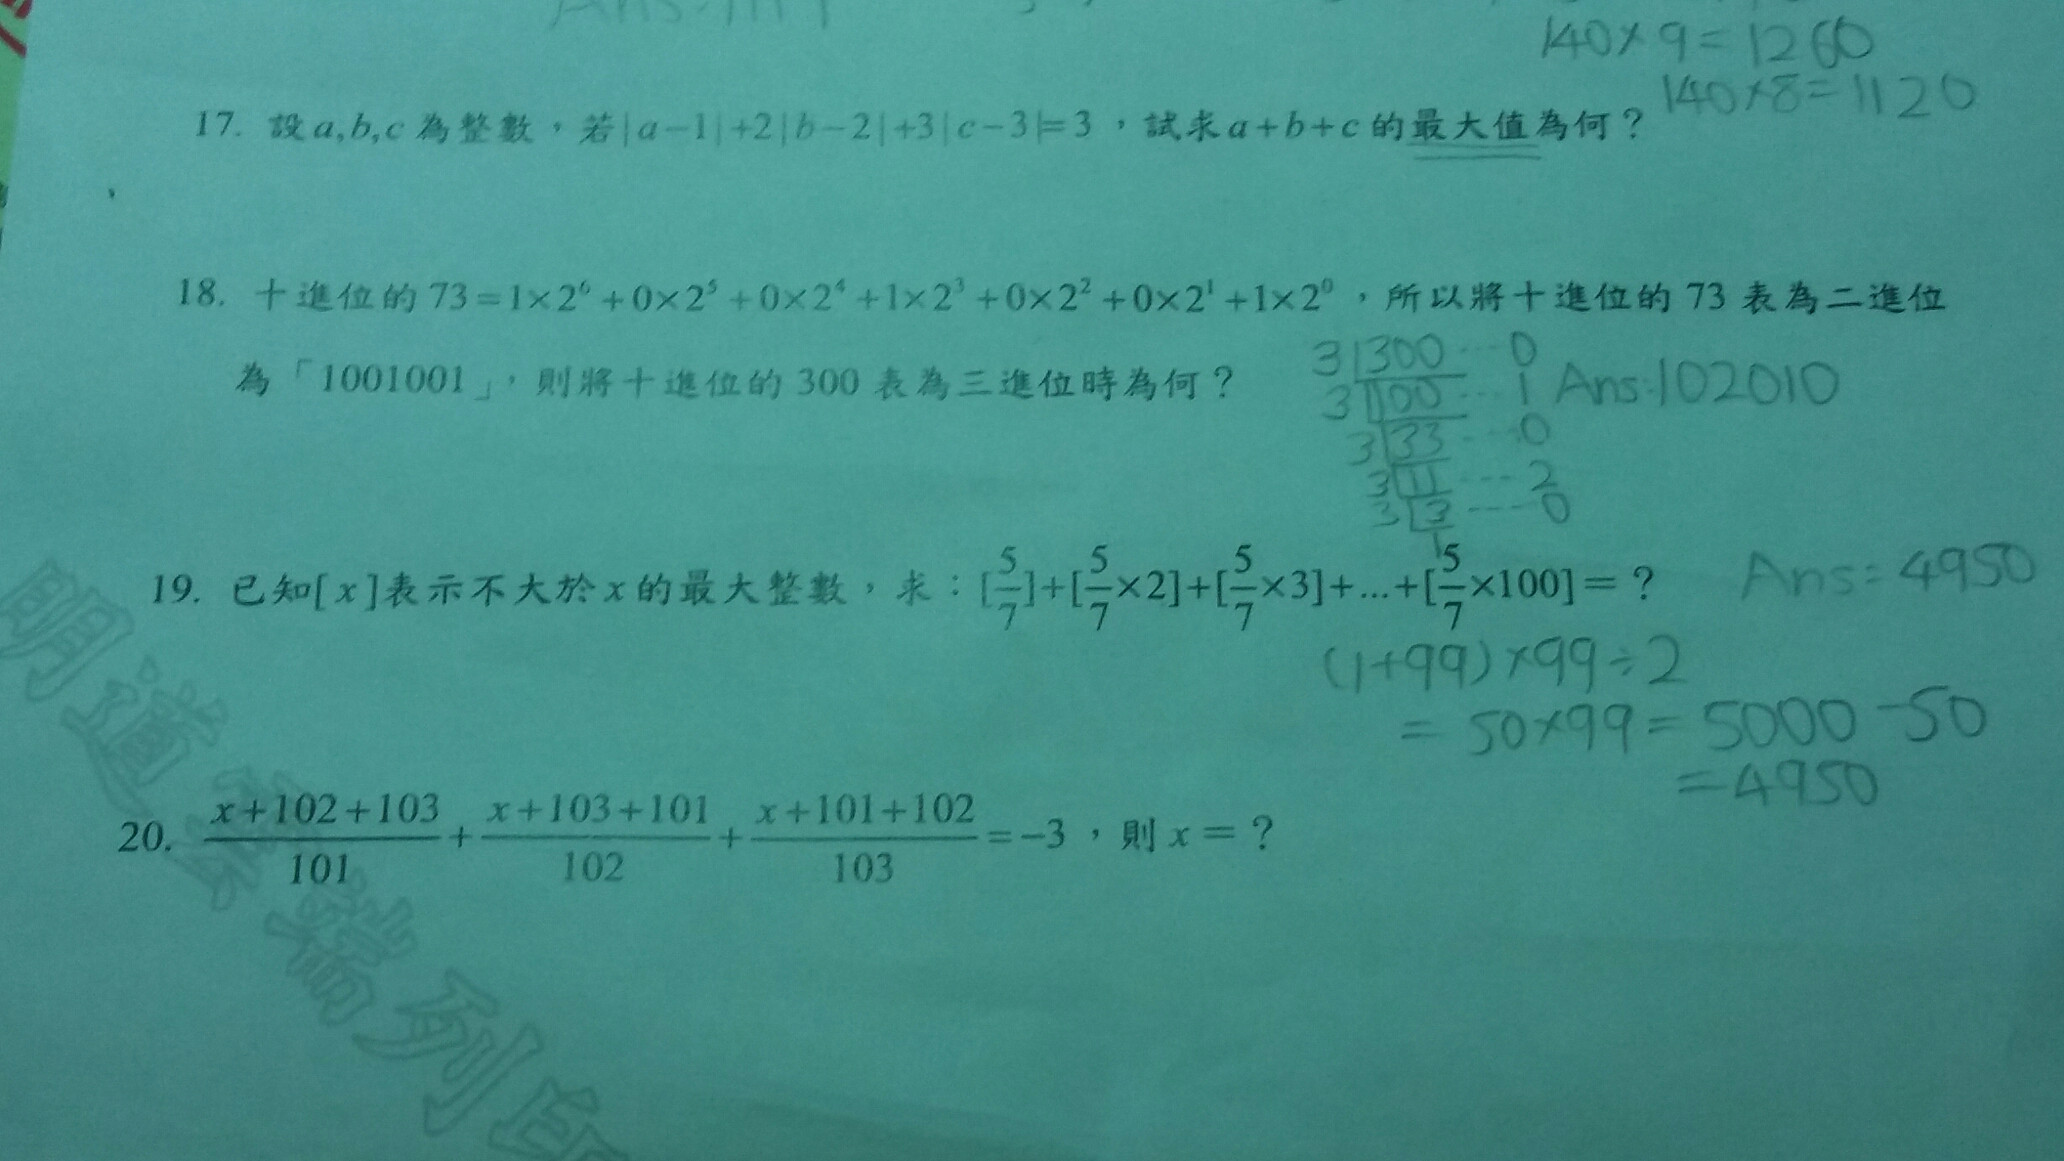 140×9=1260
140×8=1120
17. 設a,b,c為整數，若|a−1|+2|b−2|+3|c−3|=3，試求a+b+c的最大值為何？
18. 十進位的 73=1×2⁶+0×2⁵+0×2⁴+1×2³+0×2²+0×2¹+1×2⁰，所以將十進位的 73 表為二進位
為「1001001」，則將十進位的 300 表為三進位時為何？
3|300…0
3|100…1
3|33…0
3|11…2
3|3…0
1
Ans:102010
19. 已知[x]表示不大於x的最大整數，求：[5/7]+[5/7×2]+[5/7×3]+...+[5/7×100]=？
Ans=4950
(1+99)×99÷2
=50×99=5000-50
=4950
20. (x+102+103)/101+(x+103+101)/102+(x+101+102)/103=−3，則x=？
明道雲端列印